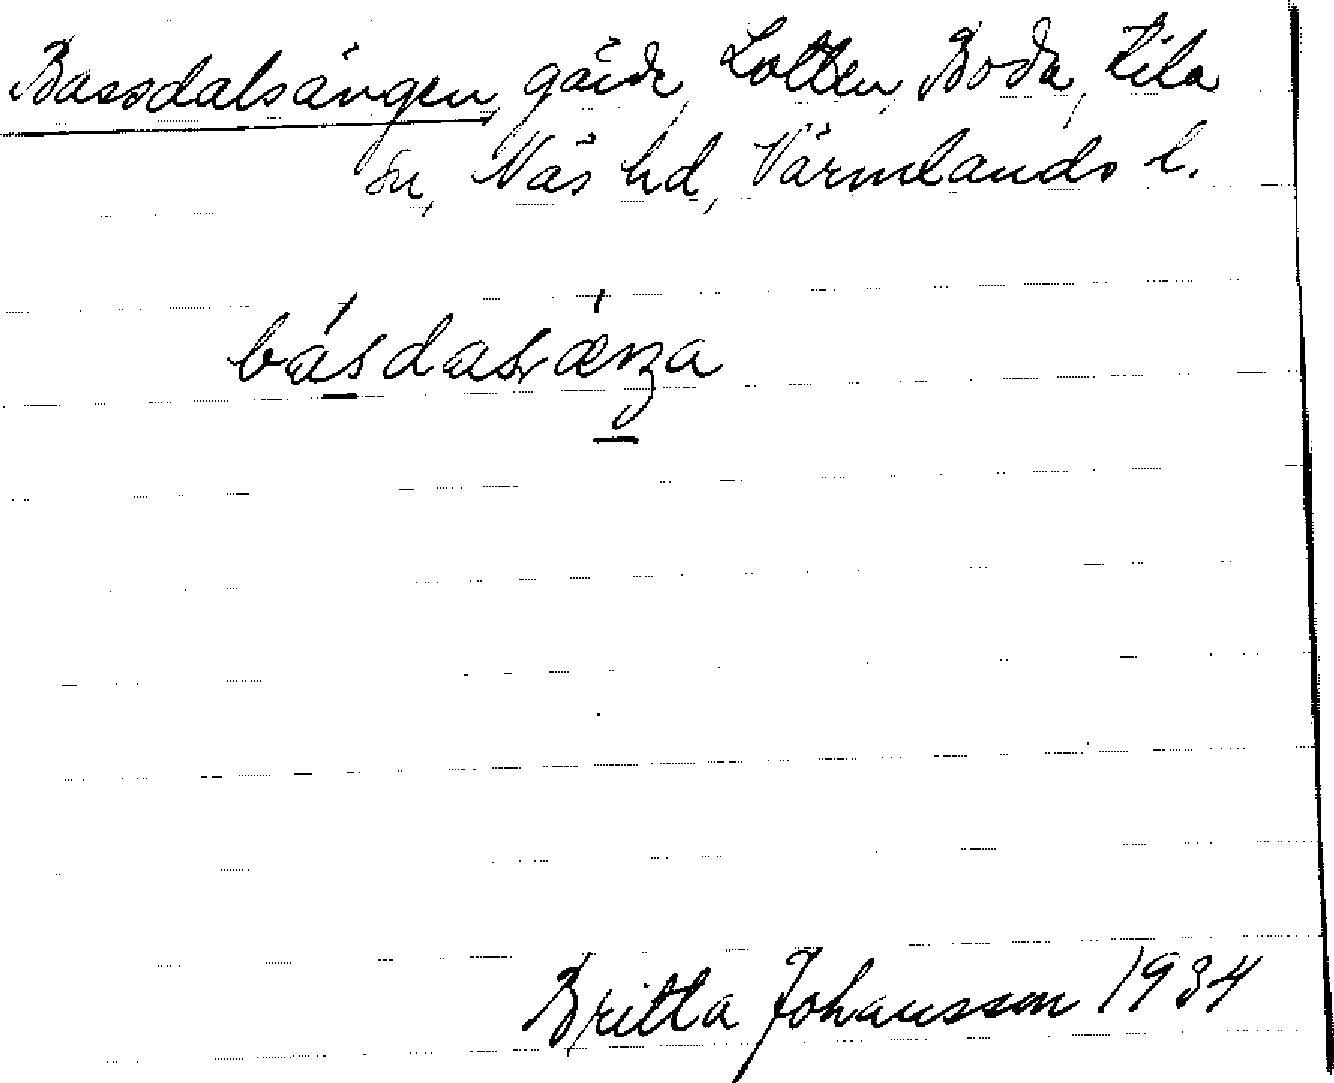 Bassdalsängen, gärde, Lotten, Boda, Kila
sn, Näs hd, Värmlands l.
básdalsæŋa
Britta Johansson 1934